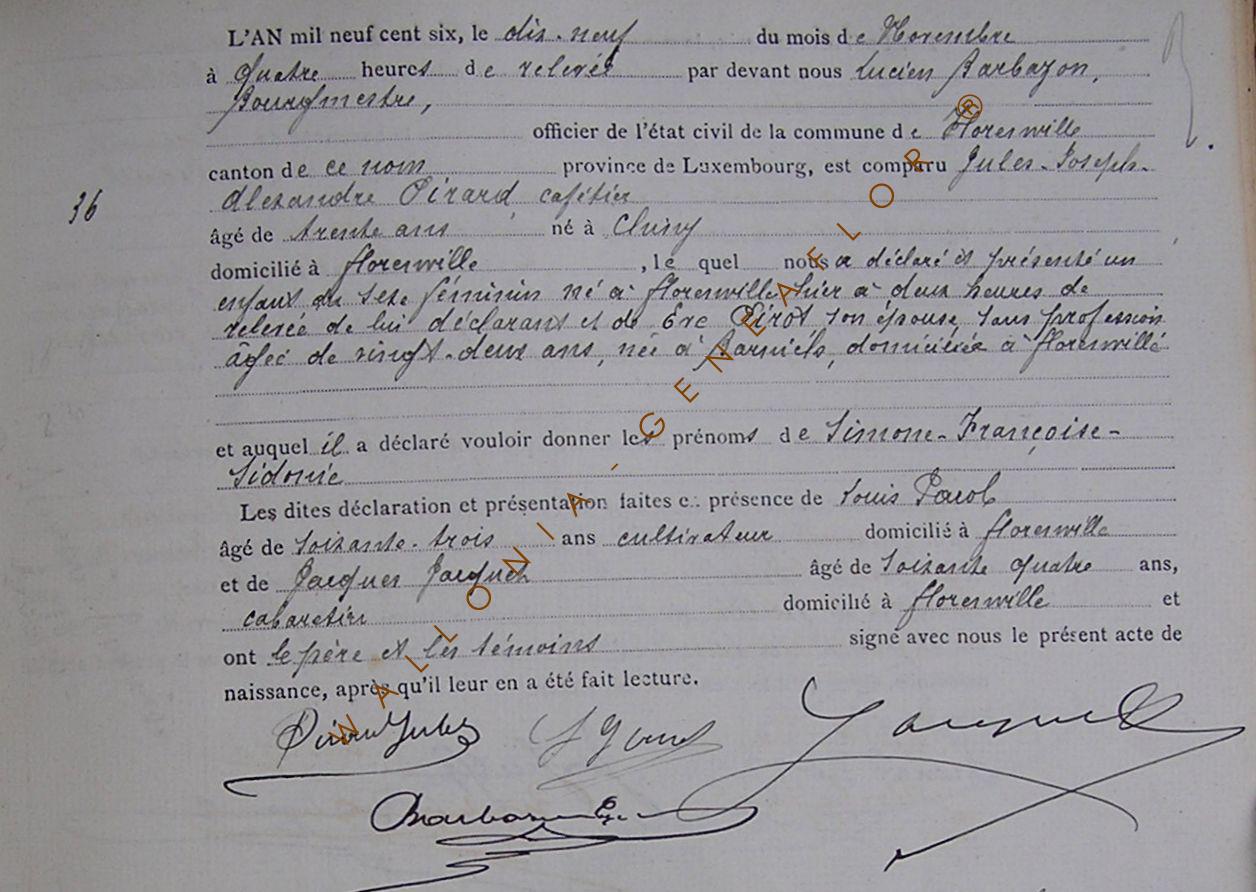 L'AN mil neuf cent six, le dix-neuf du mois de Novembre
à quatre heures de relevée par devant nous Lucien Barbazon,
Bourgmestre,
officier de l'état civil de la commune de Florenville
canton de ce nom province de Luxembourg, est comparu Jules-Joseph-
Alexandre Pirard, cafétier
36
âgé de trente ans né à Chiny
domicilié à Florenville, lequel nous a déclaré et présenté un
enfant du sexe féminin né à Florenville hier à deux heures de
relevée de lui déclarant et de Eve son épouse, sans profession
âgée de vingt-deux ans, née à domiciliée à Florenville
et auquel il a déclaré vouloir donner les prénoms de Simone-Françoise-
Sidonie
Les dites déclaration et présentation faites en présence de Louis
âgé de soixante-trois ans cultivateur domicilié à Florenville
et de Jacques âgé de soixante quatre ans,
cabaretier domicilié à Florenville et
ont le père et les témoins signé avec nous le présent acte de
naissance, après qu'il leur en a été fait lecture.
WALLONIA-GENEALOR®